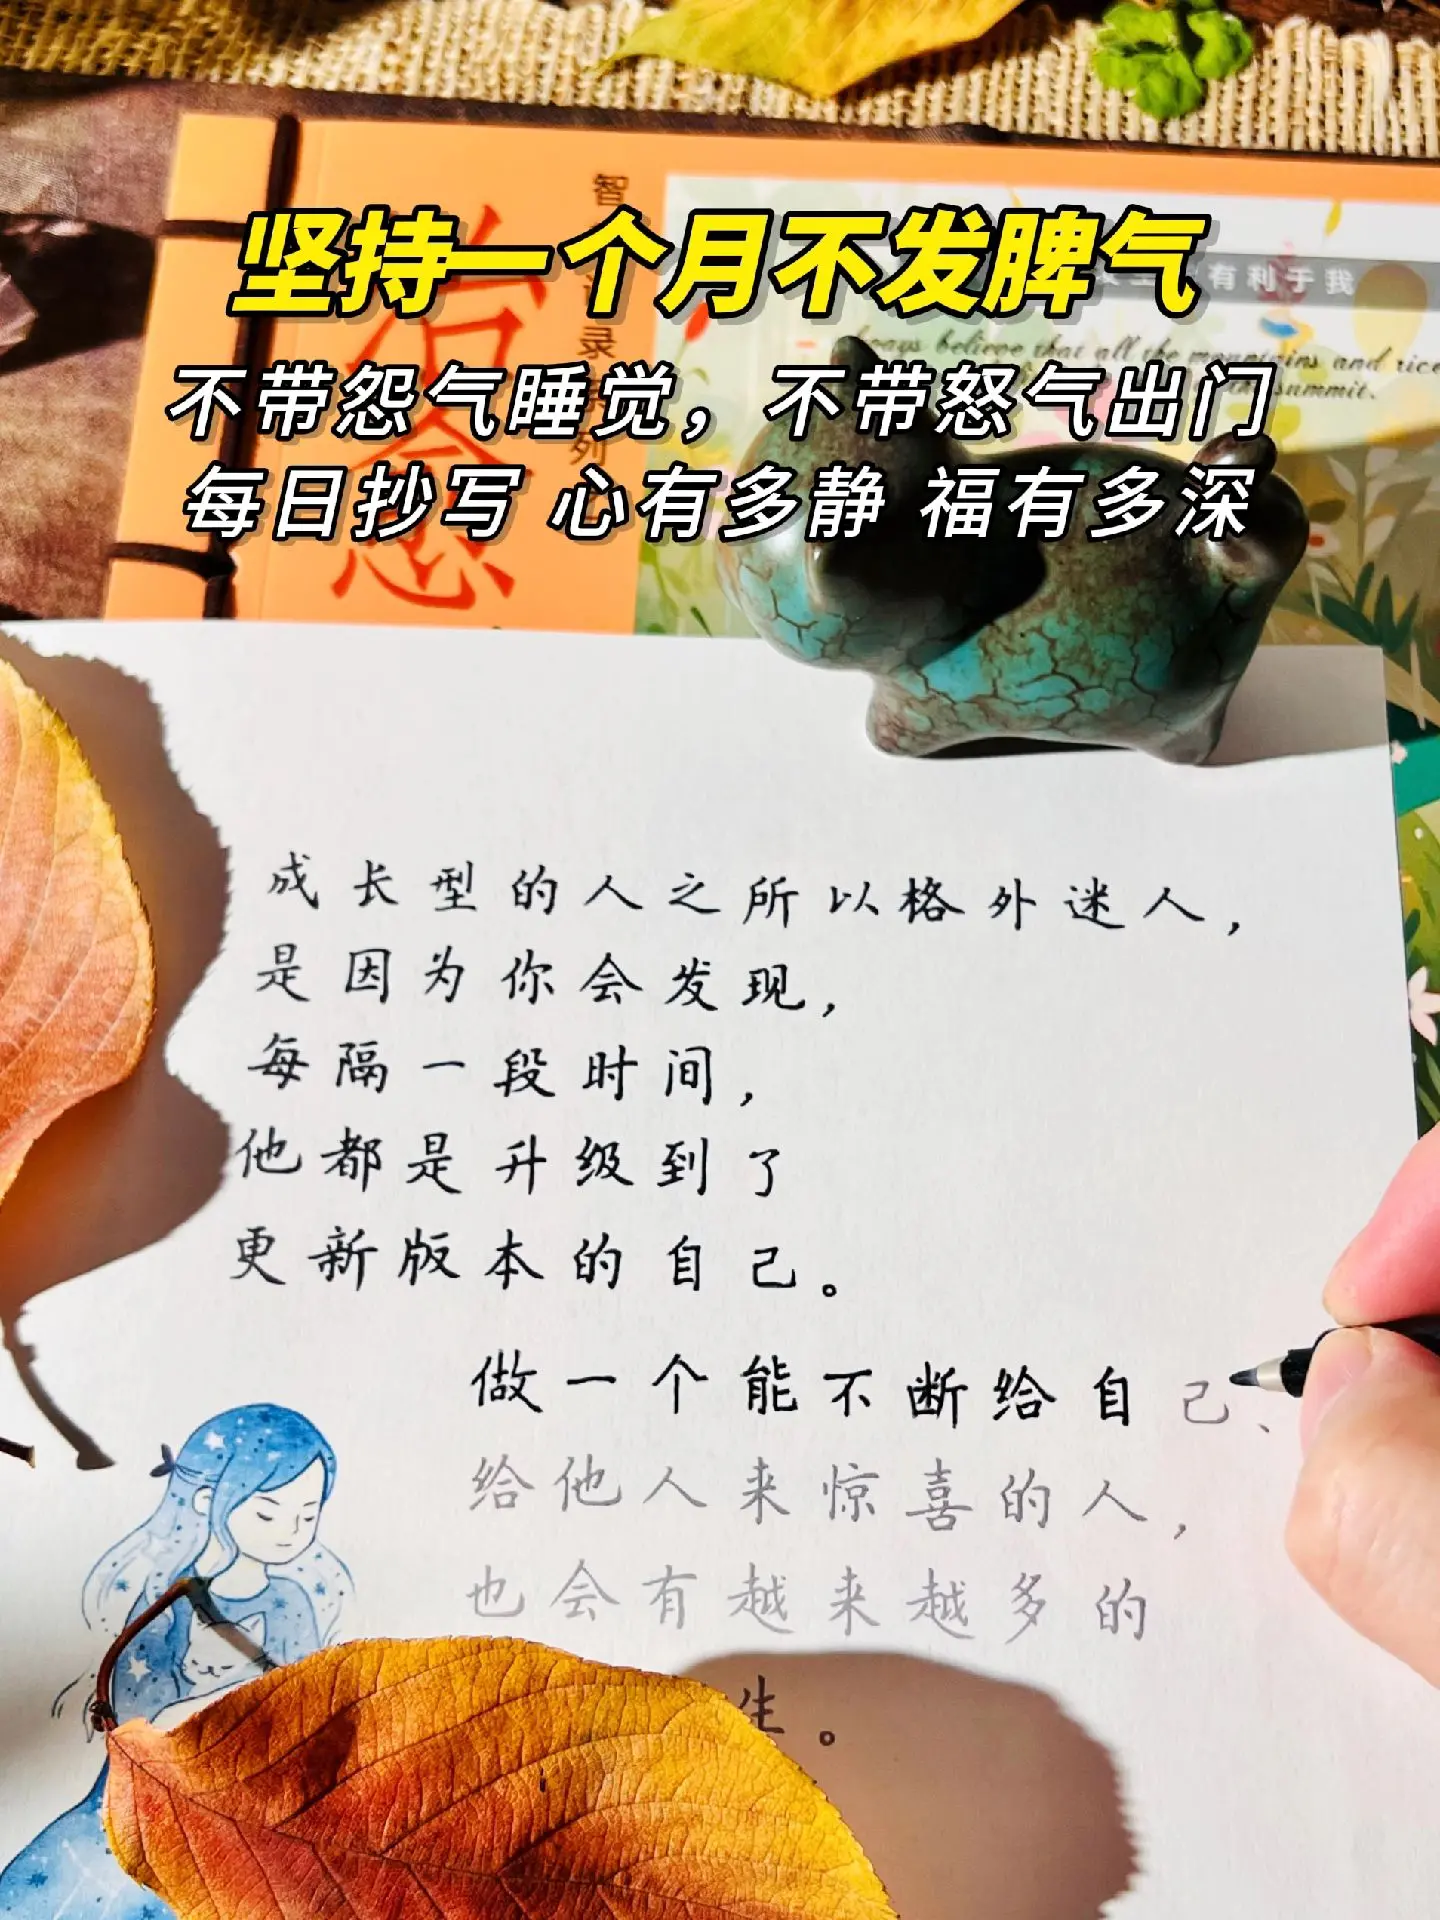 坚持一个月不发脾气
不带怨气睡觉，不带怒气出门
每日抄写 心有多静 福有多深
治愈
有利于我
believe that all the mountains and
summit.
成长型的人之所以格外迷人，
是因为你会发现，
每隔一段时间，
他都是升级到了
更新版本的自己。
做一个能不断给自己、
给他人来惊喜的人，
也会有越来越多的
生。